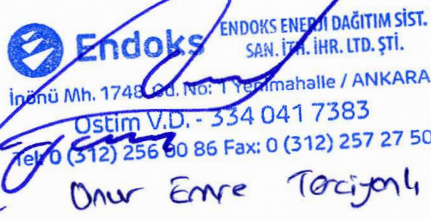 Endoks ENDOKS ENERJİ DAĞITIM SİST.
SAN. İTH. İHR. LTD. ŞTİ.
İnönü Mh. 1748. Cd. No: 1 Yenimahalle / ANKARA
Ostim V.D. - 334 041 7383
Tel: 0 (312) 256 00 86 Fax: 0 (312) 257 27 50
Onur Emre Terciyanlı